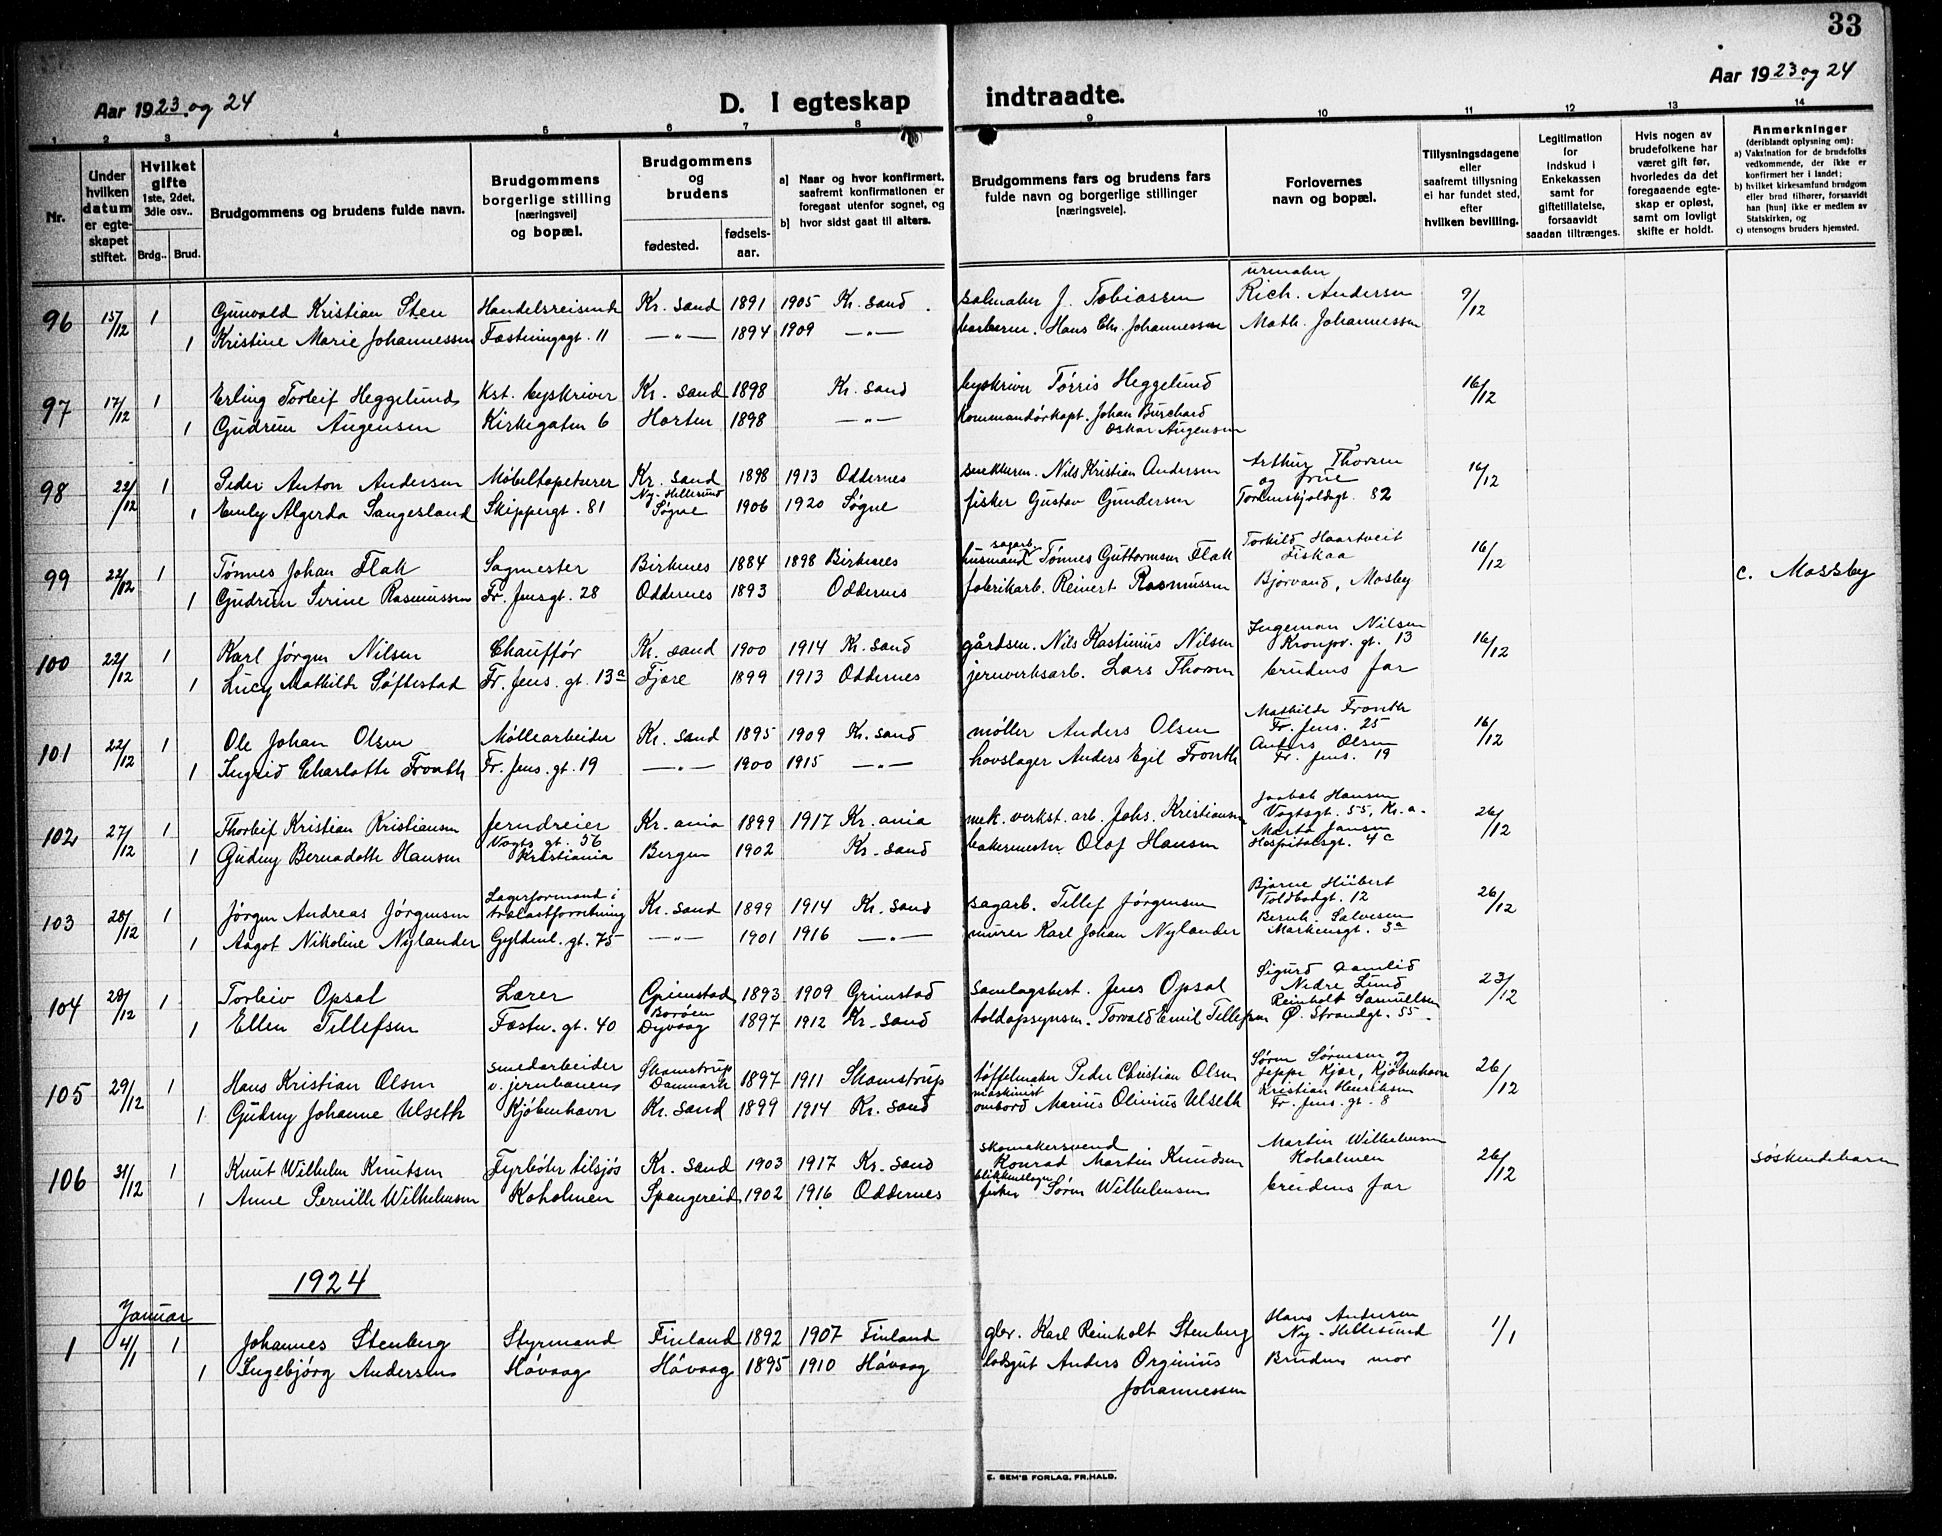 33
Aar 1923 og 24
D. I egteskap indtraadte.
Aar 1923 og 24
1 2 3 4 5 6 7 8 9 10 11 12 13 14
Nr.
Under hvilken datum er egteskapet stiftet.
Hvilket gifte 1ste, 2det, 3die osv..
Brdg.. Brud.
Brudgommens og brudens fulde navn.
Brudgommens borgerlige stilling [næringsvei] og bopæl.
Brudgommens og brudens
fødested. fødselsaar.
a) Naar og hvor konfirmert, saafremt konfirmationen er foregaat utenfor sognet, og
b) hvor sidst gaat til alters.
Brudgommens fars og brudens fars fulde navn og borgerlige stillinger [næringsveie].
Forlovernes navn og bopæl.
Tillysningsdagene eller saafremt tillysning ei har fundet sted, efter hvilken bevilling.
Legitimation for Indskud i Enkekassen samt for giftetillatelse, forsaavidt saadan tiltrænges.
Hvis nogen av brudefolkene har været gift før, hvorledes da det foregaaende egteskap er opløst, samt om lovligt skifte er holdt.
Anmerkninger (deriblandt oplysning om):
a) Vaksination for de brudefolks vedkommende, der ikke er konfirmert her i landet;
b) hvilket kirkesamfund brudgom eller brud tilhører, forsaavidt han [hun] ikke er medlem av Statskirken, og
c) utensogns bruders hjemsted.
urmaker
96 15/12 1 Gunvald Kristian Sten Handelsreisende Kr. sand 1891 1905 Kr. sand. salmaker J. Tobiassen Rich. Andersen 9/12
1 Kristine Marie Johannessen Fæstningsgt. 11 —"— 1894 1909 —"— Hans Chr. Johannessen Math. Johannessen
97 17/12 1 Erling Torleif Heggelund Kst. byskriver Kr. sand 1898 Kr. sand byskriver Tørris Heggelund 16/12
1 Gudrun Augensen Kirkegaten 6 Horten 1898 —"— Kommandørkapt. Johan Burchard
Oskar Augensen
98 22/12 1 Peder Anton Andersen Møbeltapetserer Kr. sand 1898 1913 Oddernes Nils Kristian Andersen Arthur Thorsen 16/12
Ny-Hellesund og frue
1 Emly Algerda Langesland Skippergt. 81 Søgne 1906 1920 Søgne fisker Gustav Gundersen Tordenskjoldsgt. 82
sagarb. Torkild Haartveit
99 22/12 1 Tønnes Johan Flak Sagmester Birkenes 1884 1898 Birkenes husmand Tønnes Guttormsen Flak Fiskaa 16/12 c. Mossby
1 Gudrun Serine Rasmussen Fr. Jensgt. 28 Oddernes 1893 Oddernes fabrikarb. Reinert Rasmussen Bjørvand, Mosby
Ingeman Nilsen
100 22/12 1 Karl Jørgen Nilsen Chauffør Kr. sand 1900 1914 Kr. sand gårdsen. Nils Kastinius Nilsen Kronpr. gt. 13 16/12
1 Lucy Mathilde Søftestad Fr. Jens. gt. 13a Fjære 1899 1913 Oddernes jernverksarb. Lars Thorsen brudens far
Mathilde Fronth
101 22/12 1 Ole Johan Olsen Møllearbeider Kr. sand 1895 1909 Kr. sand møller Anders Olsen Fr. Jens. 25 16/12
Anders Olsen
1 Ingrid Charlotte Fronth Fr. Jens. gt. 19 —"— 1900 1915 —"— hovslager Anders Egil Fronth Fr. Jens. 19
Jakob Hansen
102 27/12 1 Thorleif Kristian Kristiansen Jerndreier Kr. ania 1899 1917 Kr. ania mek. verkst. arb. Johs. Kristiansen Vogtsgt. 55, Kr.a. 26/12
Vogts gt. 56 Marta Jansen
1 Gudny Bernadotte Hansen Kristiania Bergen 1902 Kr. sand bakermester Olaf Hansen Hospitalsgt. 4c
Lagerformand i Bjarne Hübert
103 28/12 1 Jørgen Andreas Jørgensen trælastforretning Kr. sand 1899 1914 Kr. sand sagarb. Tellef Jørgensen Toldbodgt. 12 26/12
Bernh. Salvesen
1 Aagot Nikoline Nylander Gyldenl. gt. 75 —"— 1901 1916 —"— murer Karl Johan Nylander Markensgt. 3a
Sigurd Aamlid
104 28/12 1 Torleiv Opsal Lærer Grimstad 1893 1909 Grimstad samlagsbest. Jens Opsal Nedre Lund 23/12
Borøen Reinholt Samuelsen
1 Ellen Tellefsen Fæstn. gt. 40 Dyvaag 1897 1912 Kr. sand toldopsynsm. Torvald Emil Tellefsen Ø. Strandgt. 55.
smedarbeider Skamstrup Søren Sørensen og
105 29/12 1 Hans Kristian Olsen v. jernbanens Danmark 1897 1911 Skamstrup tøffelmaker Peder Christian Olsen Jeppe Kjær, Kjøbenhavn 26/12
maskinist Kristian Henriksen
1 Gudny Johanne Ulseth Kjøbenhavn Kr. sand 1899 1914 Kr. sand ombord Marius Olivius Ulseth Fr. Jens. gt. 8
skomakersvend Martin Wilhelmsen
106 31/12 1 Knut Wilhelm Knutsen Fyrbøter tilsjøs Kr. sand 1903 1917 Kr. sand Konrad Martin Knudsen Koholmen 26/12 søskendebarn
blikkenslager
1 Anne Pernille Wilhelmsen Koholmen Spangereid 1902 1916 Oddernes fisker Søren Wilhelmsen brudens far
1924
Januar
Hans Andersen
1 4/1 1 Johannes Stenberg Styrmand Finland 1892 1907 Finland gbr. Karl Reinholt Stenberg Ny-Hellesund 1/1
1 Ingebjørg Andersen Høvaag Høvaag 1895 1910 Høvaag losgut Anders Orginius Brudens mor
Johannessen
E. SEM'S FORLAG, FR.HALD.